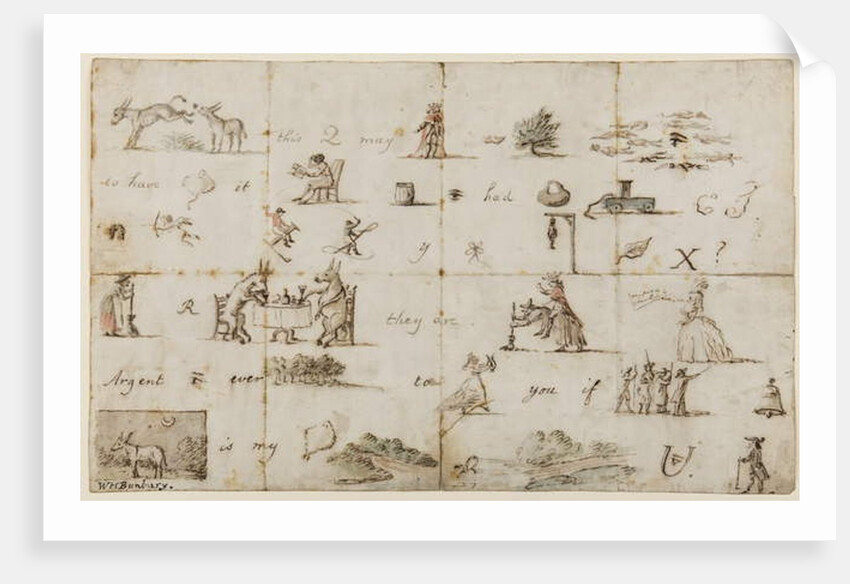 this 2 may as
to have it had C J.
y X ?
R they are
Argent ever to you if
is my U
Wm Bunbury.